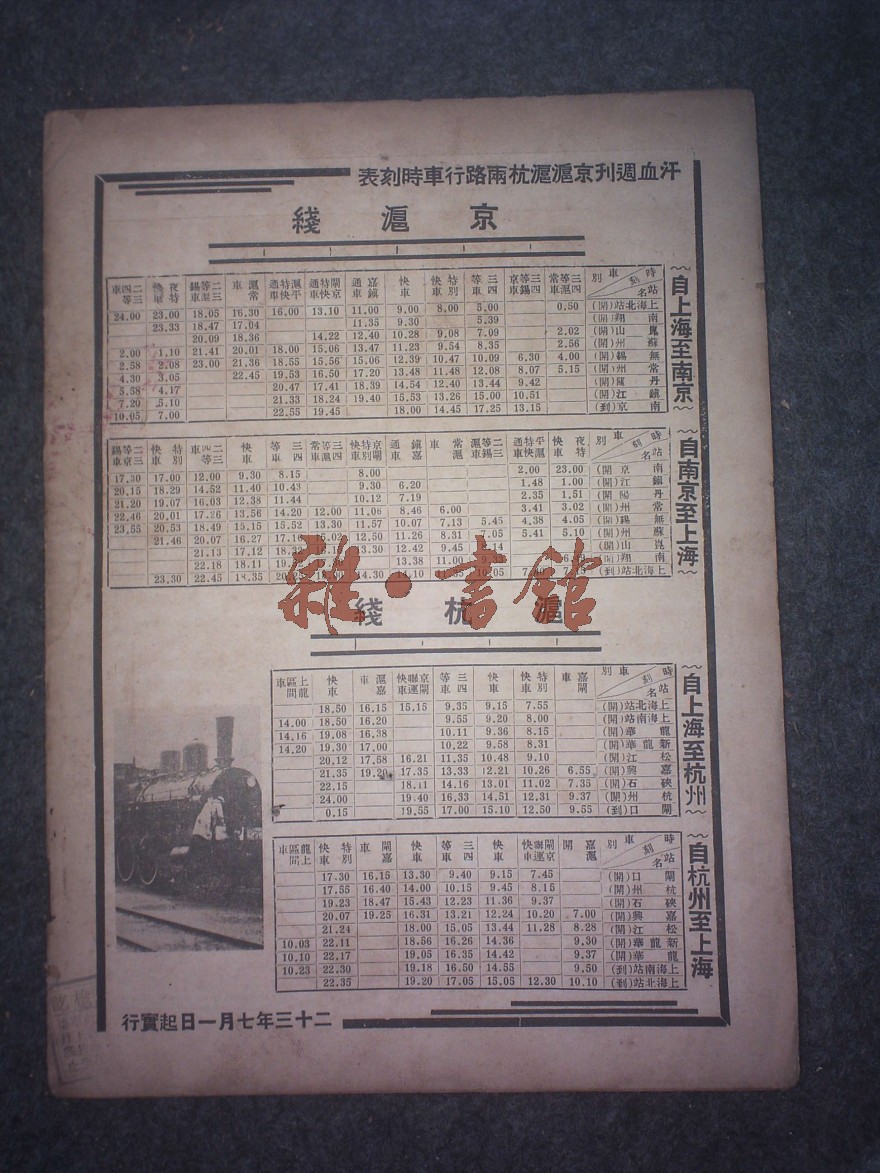 汗血週刊京滬滬杭兩路行車時刻表
京滬綫
自上海至南京
時刻 車別 站名 常滬三四等車 京錫三四等車 三四等車 特別快車 快車 嘉鎮通車 閘京特快通車 滬平特快通車 滬常車 夜特快車 二三四等車
上海北站(開) 0.50 5.00 8.00 9.00 11.00 13.10 16.00 16.30 18.05 23.00 24.00
南翔(開) 5.39 9.30 11.35 17.04 18.47 23.33
崑山(開) 2.02 7.09 9.08 10.28 12.40 14.22 18.36 20.09
蘇州(開) 2.56 8.35 9.54 11.23 13.47 15.06 18.00 20.01 21.41 1.10 2.00
無錫(開) 4.00 6.30 10.09 10.47 12.39 15.06 15.56 18.55 21.36 23.00 2.08 2.58
常州(開) 5.15 8.07 12.08 11.48 13.48 17.20 16.50 19.53 22.45 3.05 4.30
丹陽(開) 9.42 13.44 12.40 14.54 18.39 17.41 20.47 4.17 5.58
鎮江(開) 10.51 15.00 13.26 15.53 19.40 18.24 21.33 5.10 7.20
南京(到) 13.15 17.25 14.45 18.00 19.45 22.55 7.00 10.05
自南京至上海
時刻 車別 站名 夜特快車 平滬特快通車 常滬車 鎮嘉通車 京閘特快車 三四等車 快車 二三四等車 特別快車
南京(開) 23.00 2.00 8.00 8.15 9.30 12.00 17.00 17.30
鎮江(開) 1.00 1.48 6.20 9.30 10.43 11.40 14.52 18.29 20.15
丹陽(開) 1.51 2.35 7.19 10.12 11.44 12.38 16.03 19.07 21.20
常州(開) 3.02 3.41 6.00 8.46 11.06 12.00 14.20 13.56 17.26 20.01 22.46
無錫(開) 4.05 4.38 5.45 7.13 10.07 11.57 13.30 15.52 15.15 18.49 20.53 23.55
蘇州(開) 5.10 5.41 7.05 8.31 11.26 12.50 15.02 16.27 20.07 21.46
崑山(開) 9.45 12.42 13.30 17.12 21.13
南翔(開) 11.00 13.38 18.11 22.18
上海北站(到) 10.05 14.10 14.30 18.35 22.45 23.30
雜·書館
滬杭綫
自上海至杭州
時刻 車別 站名 嘉閘車 特別快車 快車 三四等車 京閘聯運快車 滬嘉車 快車 上龍區間車
上海北站(開) 7.55 9.15 9.35 15.15 16.15 18.50
上海南站(開) 8.00 9.20 9.55 16.20 18.50 14.00
龍華(開) 8.15 9.36 10.11 16.38 19.08 14.16
新龍華(開) 8.31 9.58 10.22 17.00 19.30 14.20
松江(開) 9.10 10.48 11.35 16.21 17.58 20.12
嘉興(開) 6.55 10.26 12.21 13.33 17.35 19.20 21.35
硤石(開) 7.35 11.02 13.01 14.16 18.11 22.15
杭州(開) 9.37 12.31 14.51 16.33 19.40 24.00
閘口(到) 9.55 12.50 15.10 17.00 19.55 0.15
自杭州至上海
時刻 車別 站名 嘉滬 閘京聯運快車 快車 三四等車 快車 閘嘉車 特別快車 龍上區間車
閘口(開) 7.45 9.15 9.40 13.30 16.15 17.30
杭州(開) 8.15 9.45 10.15 14.00 16.40 17.55
硤石(開) 9.37 11.36 12.23 15.43 18.47 19.23
嘉興(開) 7.00 10.20 12.24 13.21 16.31 19.25 20.07
松江(開) 8.28 11.28 13.44 15.05 18.00 21.24
新龍華(開) 9.30 14.36 16.26 18.56 22.11 10.03
龍華(開) 9.37 14.42 16.35 19.05 22.17 10.10
上海南站(到) 9.50 14.55 16.50 19.18 22.30 10.23
上海北站(到) 10.10 12.30 15.05 17.05 19.20 22.35
二十三年七月一日起實行